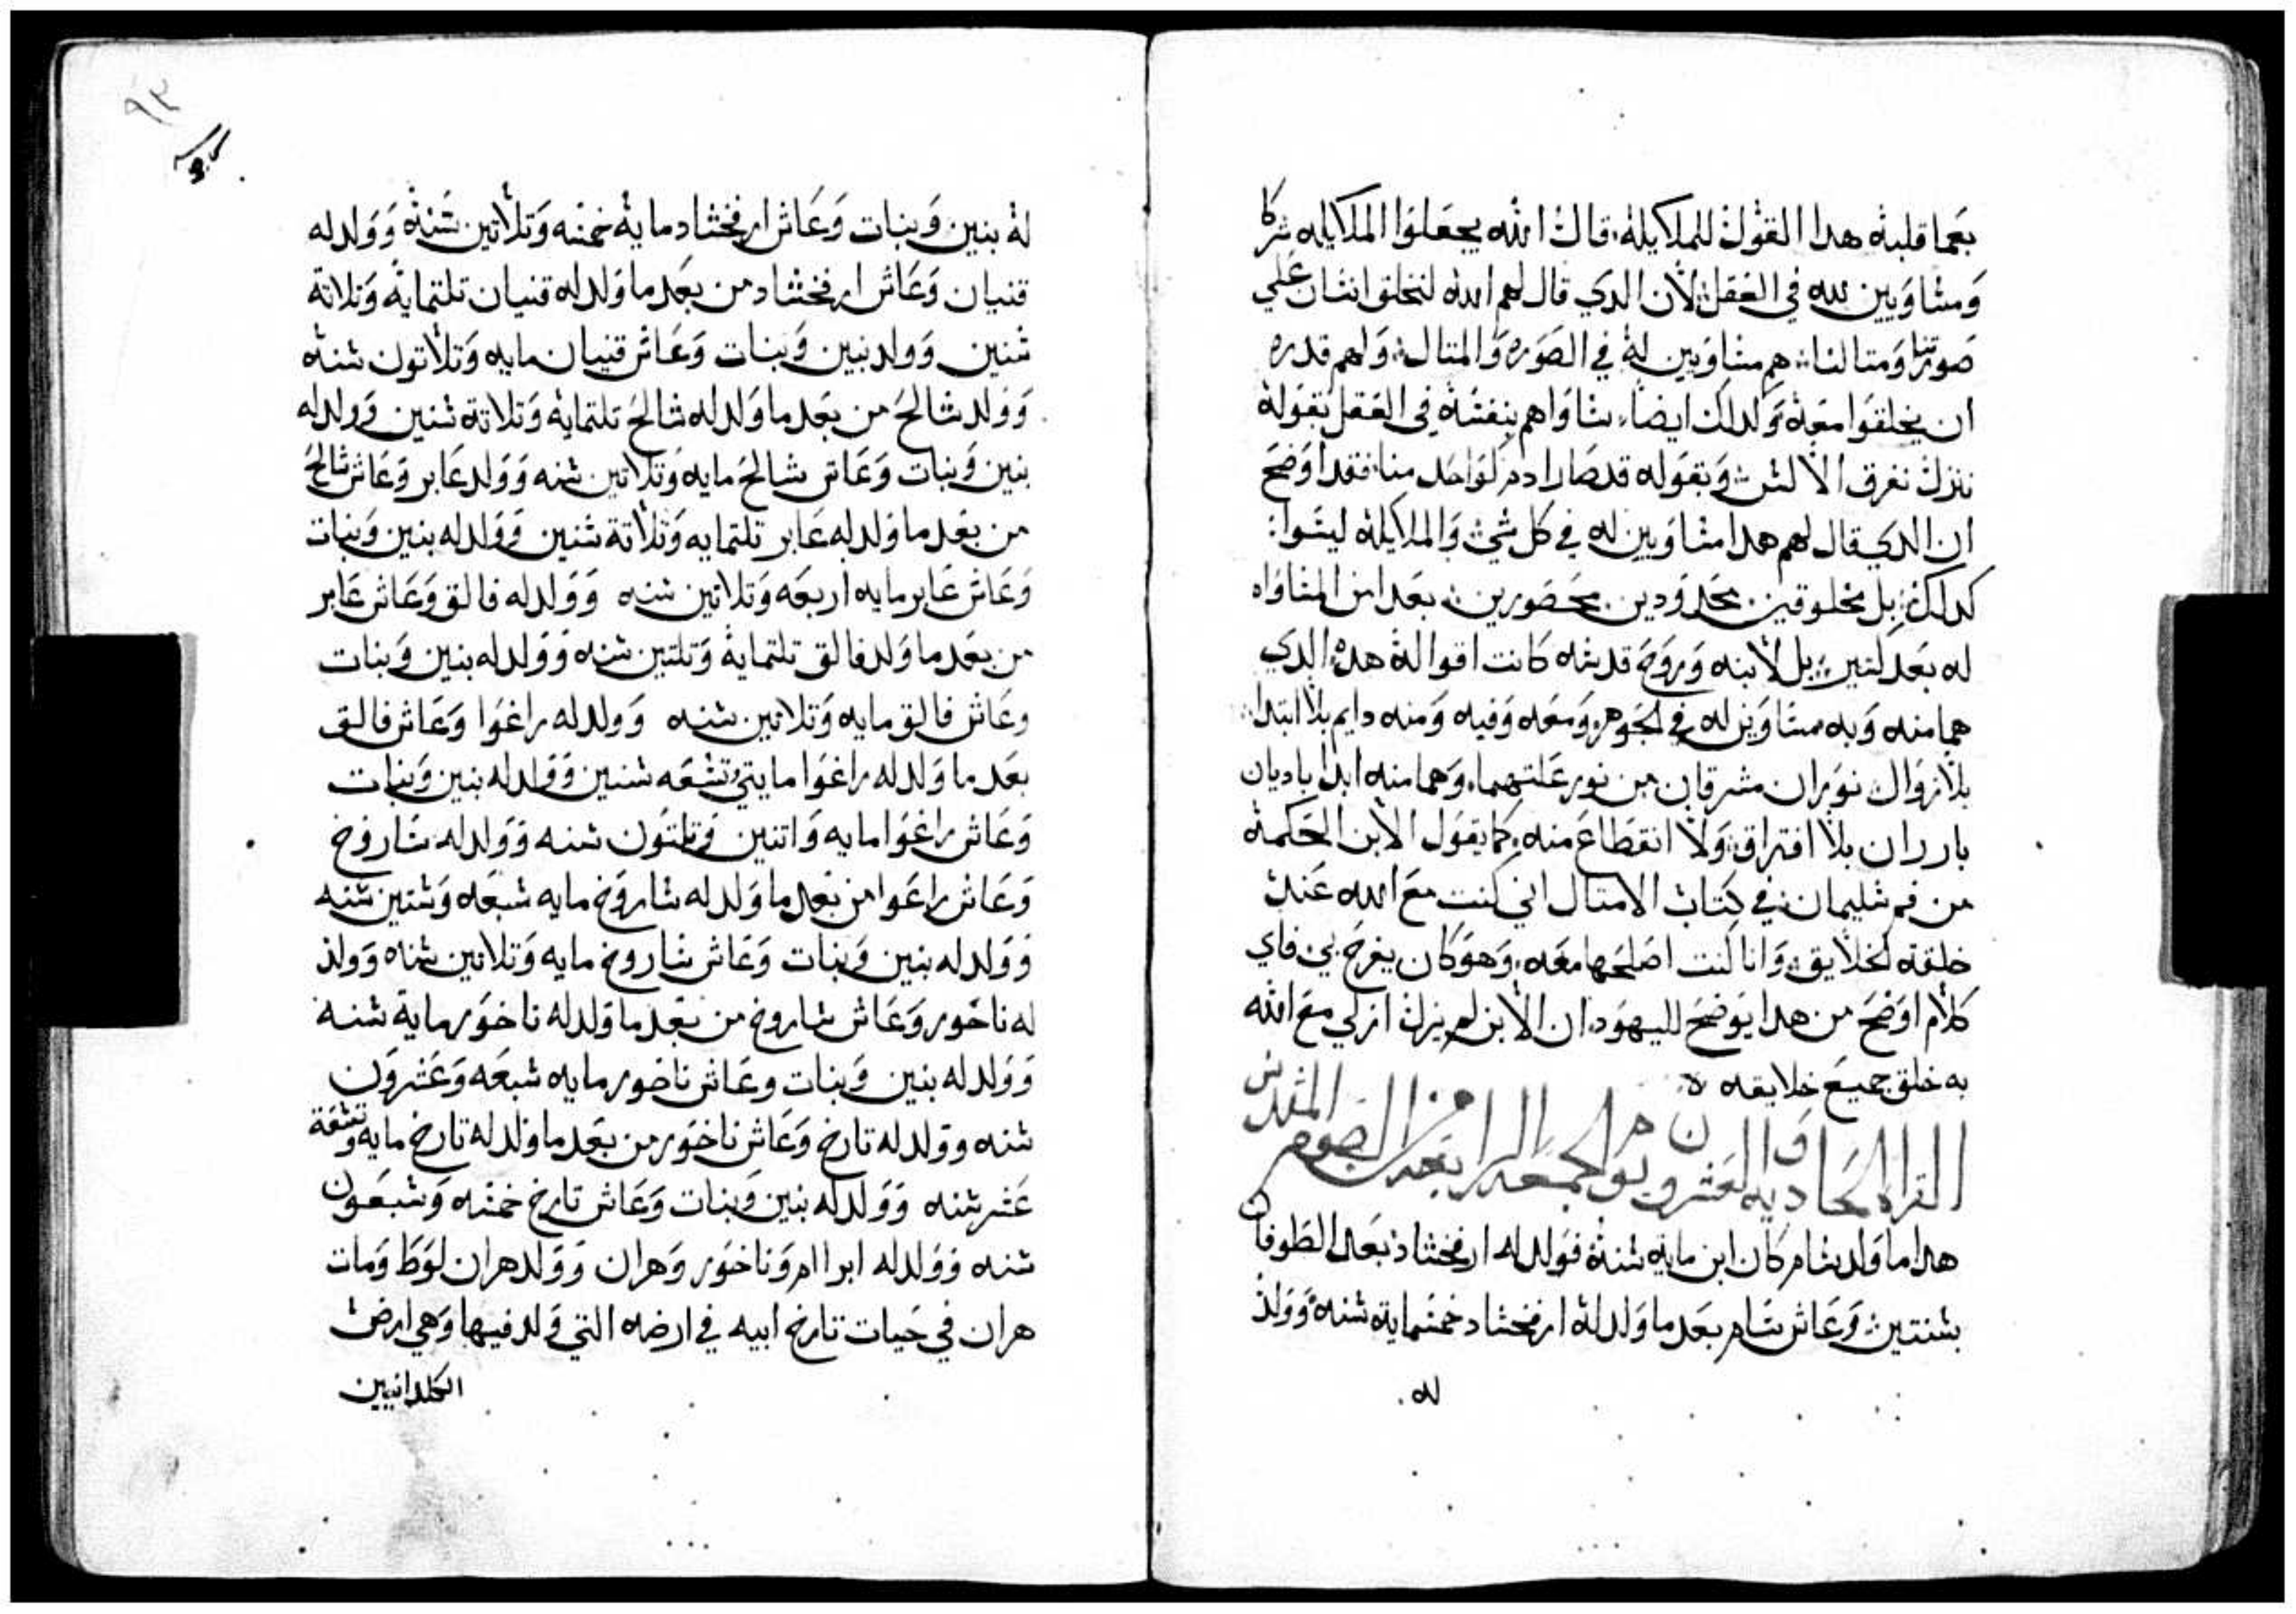 بعما قلبه هدا القول للملايكه قال الله يجعلوا الملايكه شركا
ومشاويين لله في العقل لان الدي قال لهم الله لنخلق انشان علي
صورتنا ومتالنا هم مشاويين له في الصوره والمتال ولهم قدره
ان يخلقوا معه وكدلك ايضا شاواهم بنفشه في العقل بقوله
ننزل نفرق الالشن وبقوله قد صار ادم كواحد منا فقد اوضح
ان الدي قال لهم هدا مشاويين له في كل شي والملايكه ليشوا
كدلك بل مخلوقين محدودين محصورين بعدا من المشاواه
له بعد كتير بل لابنه وروح قدشه كانت اقواله هده الدي
هما منه وبه مشاويين له في الجوهر ومعه وفيه ومنه دايم بلا ابتدا
بلا زوال نوران مشرقان من نور علتهما وهما منه ابدا باديان
بارزان بلا افتراق ولا انقطاع منه كما يقول الابن الحكمه
من فم شليمان في كتاب الامتال اني كنت مع الله عند
خلقته الخلايق وانا كنت اصلحها معه وهو كان يفرح بي فاي
كلام اوضح من هدا يوضح لليهود ان الابن لم يزل ازلي مع الله
به خلق جميع خلايقه
القراه الحاديه والعشرون من يوم الجمعه الرابعه من الصوم المقدش
هدا ما ولد شام كان ابن مايه شنه فولد له ارفخشاد بعد الطوفان
بشنتين وعاش شام بعد ما ولد له ارفخشاد خمشمايه شنه وولد
له
٩٣
له بنين وبنات وعاش ارفخشاد مايه خمشه وتلاتين شنه وولد له
قنيان وعاش ارفخشاد من بعد ما ولد له قنيان تلتمايه وتلاتة
شنين وولد بنين وبنات وعاش قنيان مايه وتلاتون شنه
وولد شالح من بعد ما ولد له شالح تلتمايه وتلاتة شنين وولد له
بنين وبنات وعاش شالح مايه وتلاتين شنه وولد عابر وعاش شالح
من بعد ما ولد له عابر تلتمايه وتلاتة شنين وولد له بنين وبنات
وعاش عابر مايه اربعه وتلاتين شنه وولد له فالق وعاش عابر
من بعد ما ولد فالق تلتماية وتلتين شنه وولد له بنين وبنات
وعاش فالق مايه وتلاتين شنه وولد له راغوا وعاش فالق
بعد ما ولد له راغوا مايتي وتشعه شنين وولد له بنين وبنات
وعاش راغوا مايه واتنين وتلتون شنه وولد له شاروخ
وعاش راغوا من بعد ما ولد له شاروخ مايه شبعه وشتين شنه
وولد له بنين وبنات وعاش شاروخ مايه وتلاتين شنه وولد
له ناخور وعاش شاروخ من بعد ما ولد له ناخور ماية شنه
وولد له بنين وبنات وعاش ناخور مايه شبعه وعشرون
شنه وولد له تارخ وعاش ناخور من بعد ما ولد له تارخ مايه وتشعة
عشر شنه وولد له بنين وبنات وعاش تارخ خمشه وشبعون
شنه وولد له ابراام وناخور وهران وولد هران لوط ومات
هران في حيات تارخ ابيه في ارضه التي ولد فيها وهي ارض
الكلدانيين